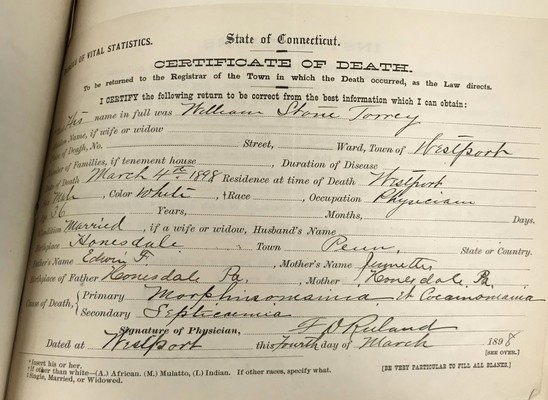 OF VITAL STATISTICS.
State of Connecticut.
CERTIFICATE OF DEATH.
To be returned to the Registrar of the Town in which the Death occurred, as the Law directs.
I CERTIFY the following return to be correct from the best information which I can obtain:
His name in full was William Stone Torrey
Name, if wife or widow
of Death, No. Street, Ward, Town of Westport
Number of Families, if tenement house , Duration of Disease
of Death March 4th 1898 Residence at time of Death Westport
Male , Color White , †Race , Occupation Physician
36 Years, Months, Days.
Condition Married , if a wife or widow, Husband's Name
Birthplace Honesdale Town Penn, State or Country.
Father's Name Edwin F. , Mother's Name Jennette
Birthplace of Father Honesdale Pa. , Mother Honesdale, Pa.
Cause of Death, Primary Morphinomania et Cocainomania
Secondary Septicaemia
Signature of Physician, F D Ruland
Dated at Westport this fourth day of March 1898
[SEE OVER.]
* Insert his or her.
† If other than white—(A.) African. (M.) Mulatto, (I.) Indian. If other races, specify what.
‡ Single, Married, or Widowed.
[BE VERY PARTICULAR TO FILL ALL BLANKS.]